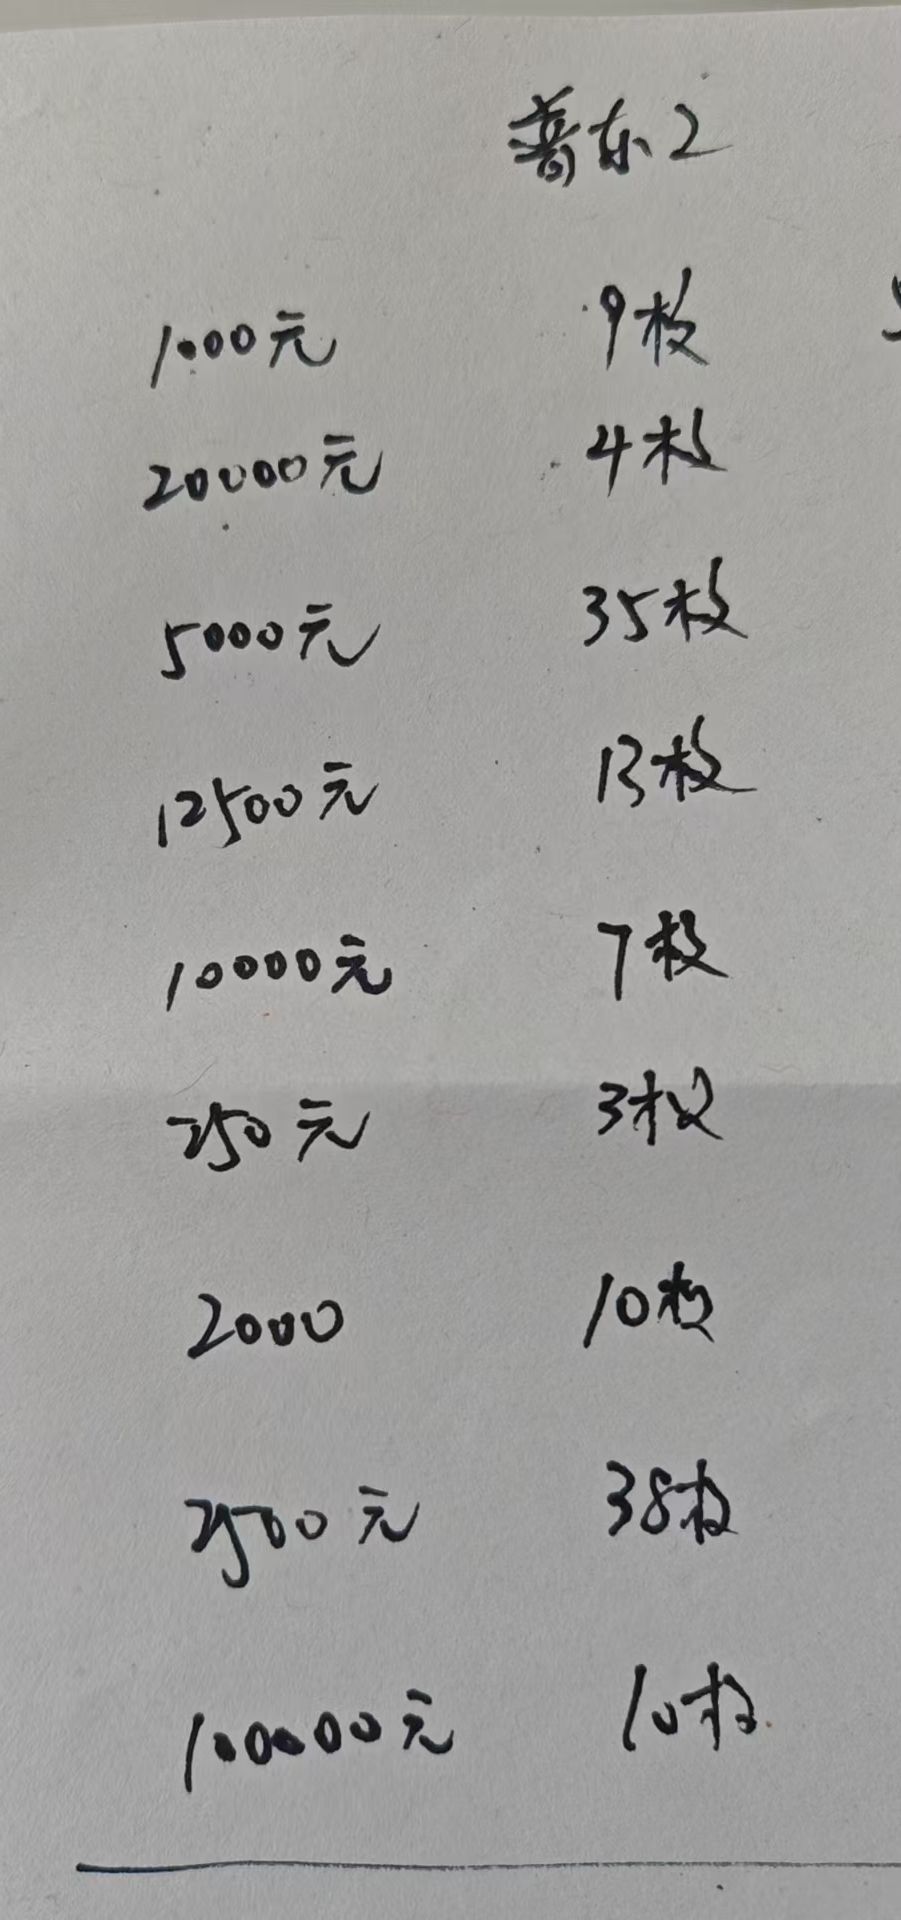 普东2
1000元 9枚
20000元 4枚
5000元 35枚
12500元 13枚
10000元 7枚
250元 3枚
2000 10枚
2500元 38枚
100000元 10枚